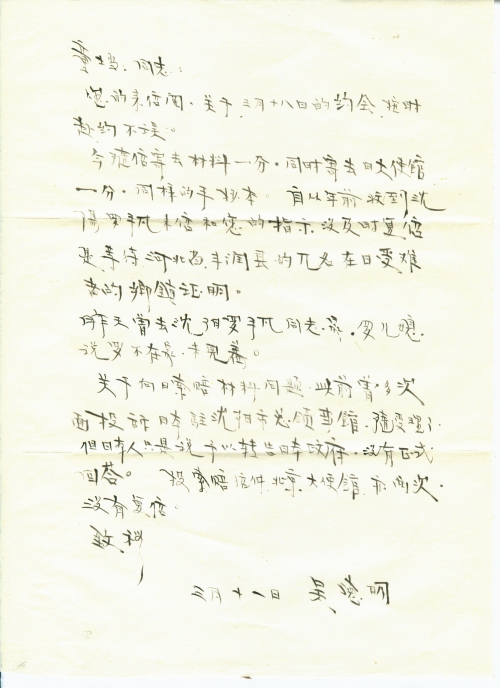 童增同志:
您的来信闻。关于三月十八日的约会,按时
赴约不误。
今随信寄去材料一分,同时寄去日大使馆
一分,同样的手抄本。自从年前收到沈
阳罗 来信和您的指示没及时复信
是等待河北省丰润县的 在日受难
者的乡镇证明。
昨天曾去沈阳罗 同志家,罗儿媳
说罗不在家,未见着。
关于向日索赔材料问题,此前曾多次
面投诉日本驻沈阳市总领事馆,随受理了
但日本人只是说予以转告日本政府,没有正式
回答。 投索赔信件北京大使馆亦两次,
没有复信。
致礼
三月十一日 吴德明